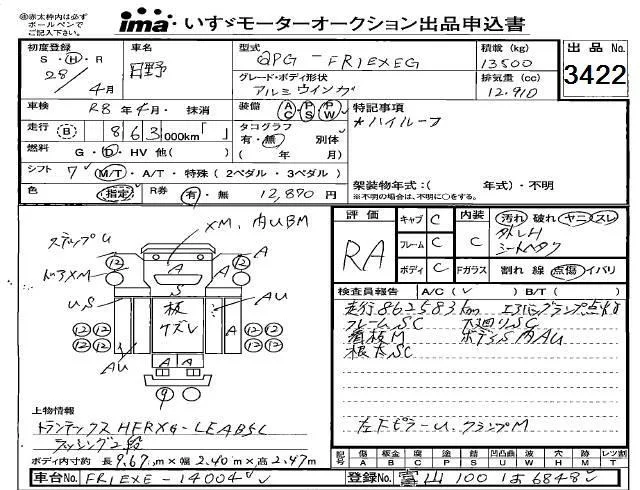 ㊟赤太枠内は必ず
ボールペンで
ご記入下さい。
ima いすゞモーターオークション出品申込書
初度登録
S ・ H ・ R
28/4月
車名
日野
型式
QPG - FR1EXEG
グレード・ボディ形状
アルミウイング
積載 (kg)
13500
排気量 (cc)
12.910
出品 No.
3422
車検 R8年4月・ 抹消
装備 AC PS PW
走行 B 863000km「 」
タコグラフ
有・無 別体
( 年 月)
燃料 G・D・HV 他( )
シフト 7 M/T・A/T・特殊 ( 2ペダル・3ペダル )
色 ( 指定 ) R券 有・無 12,870円
特記事項
*ハイルーフ
架装物年式:( 年式)・不明
※不明の場合は、不明に○をする。
評価
RA
キャブ C
フレーム C
ボディ C
内装 C
Fガラス
汚れ 破れ ヤニ スレ
シートヘタリ
割れ 線 点傷 イバリ
検査員報告 A/C( ✓ ) B/T( )
走行862583km エアバッグランプ点灯
フレームSC 下廻りSC
根太SC
左下ピラーU、クランプM
ステップU
XM、内UBM
ドアXM
US
AU
AU
板
キズレ
A
A
S
A
A
A
12
12
12 12
12 12
12 12
12 12
9
上物情報
トランテックス HFRXG-LEABSL
ラッシング2段
ボディ内寸約 長9.67m×幅2.40m×高2.47m
記号
傷 A
板金 B
腐 C
塗 P
錆 S
凹凸曲 U
波 W
穴 H
跡 M
レツ割 T
車台No. FR1EXE-14004✓✓
登録No. 富山 100 は 6848✓